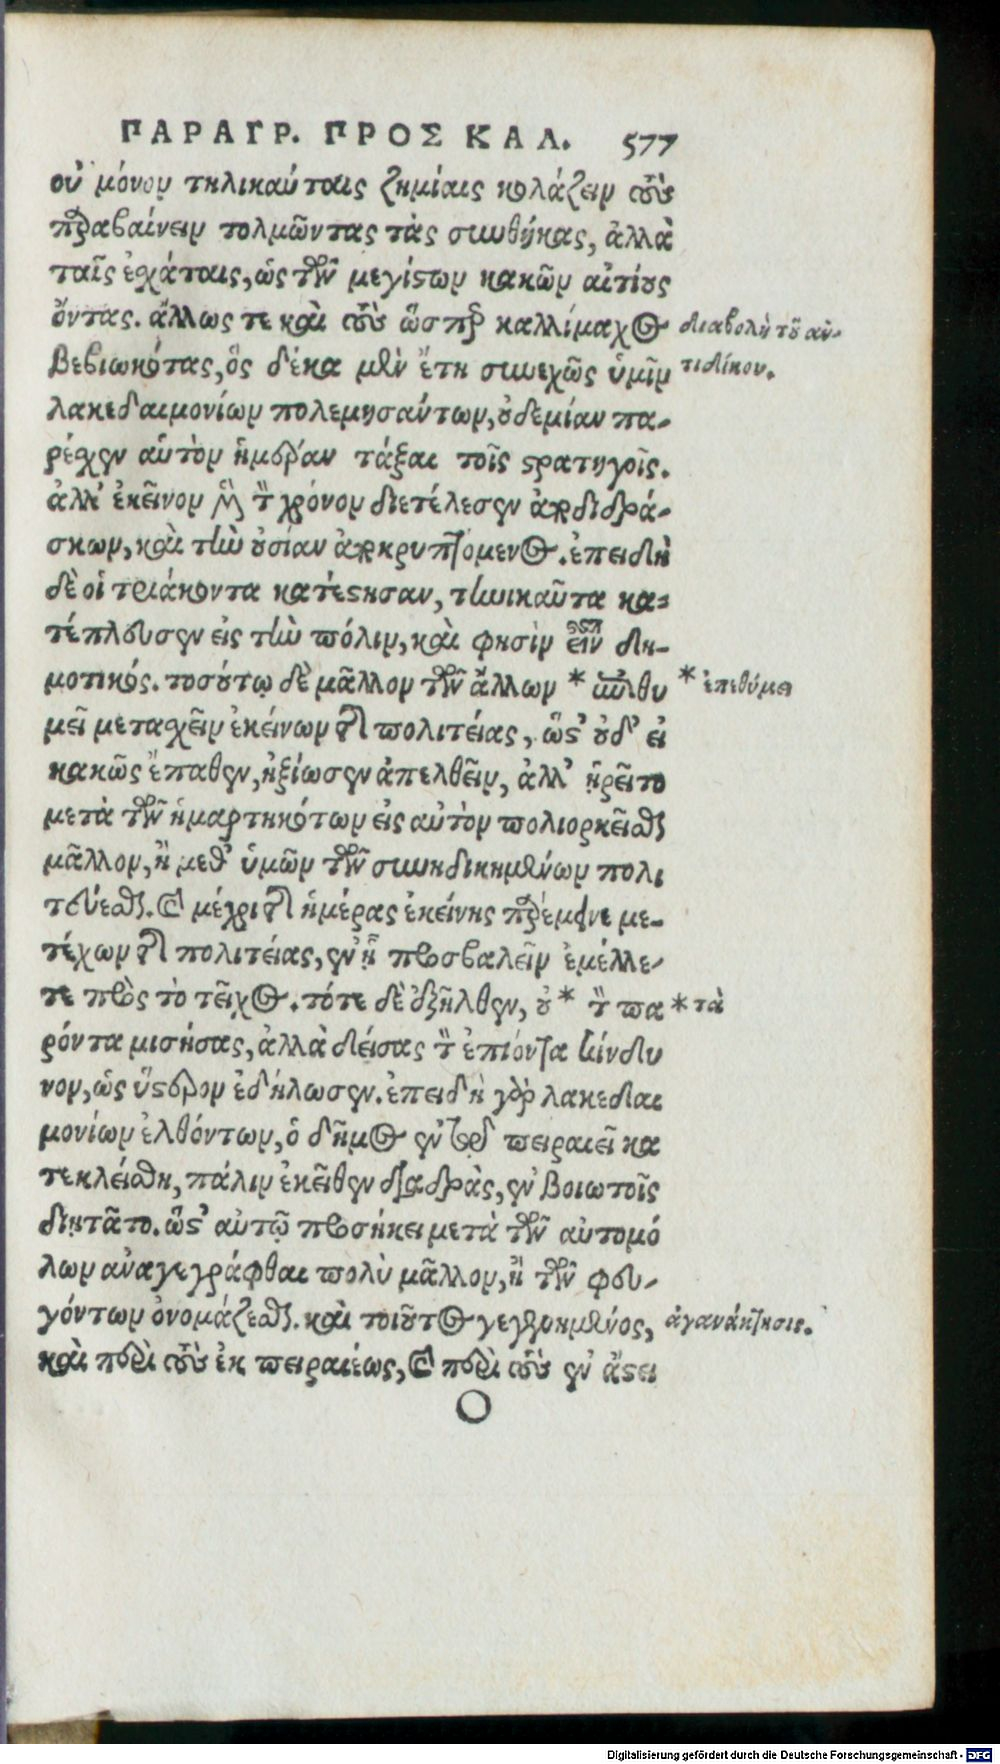 ΠΑΡΑΓΡ. ΠΡΟΣ ΚΑΛ. 577
οὐ μόνον τηλικαύταις ζημίαις κολάζειν τοὺς
παραβαίνειν τολμῶντας τὰς συνθήκας, ἀλλὰ
ταῖς ἐχάταις, ὡς τῶν μεγίστων κακῶν αἰτίους
ὄντας. ἄλλως τε καὶ τοὺς ὥσπερ καλλίμαχος
διαβολὴ τοῦ ἀν-
βεβιωκότας, ὃς δέκα μὲν ἔτη συνεχῶς ὑμῖν
τιδίκου.
λακεδαιμονίων πολεμησάντων, οὐδεμίαν πα-
ρέχεν αὑτὸν ἡμέραν τάξαι τοῖς στρατηγοῖς.
ἀλλ' ἐκεῖνον μὲν τὸν χρόνον διετέλεσεν ἀποδιδρά-
σκων, καὶ τὴν οὐσίαν ἀποκρυπτόμενος. ἐπειδὴ
δὲ οἱ τριάκοντα κατέστησαν, τηνικαῦτα κα-
τέπλευσεν εἰς τὴν πόλιν, καὶ φησὶν εἶναι δη-
μοτικός. τοσούτῳ δὲ μᾶλλον τῶν ἄλλων * ἐπιθυ
* ἐπεθύμει
μεῖ μεταχεῖν ἐκείνων τῆς πολιτείας, ὥστ' οὐδ' εἰ
κακῶς ἔπαθεν, ἠξίωσεν ἀπελθεῖν, ἀλλ' ᾑρεῖτο
μετὰ τῶν ἡμαρτηκότων εἰς αὐτὸν πολιορκεῖσθαι
μᾶλλον, ἢ μεθ' ὑμῶν τῶν συνηδικημένων πολι
τεύεσθαι. καὶ μέχρι τῆς ἡμέρας ἐκείνης παρέμεινε με-
τέχων τῆς πολιτείας, ἐν ᾗ προσβαλεῖν ἐμέλλε-
τε πρὸς τὸ τεῖχος. τότε δὲ ἐξῆλθεν, οὐ * τὸν πα
* τὰ
ρόντα μισήσας, ἀλλὰ δείσας τὸν ἐπιόντα κίνδυ
νον, ὡς ὕστερον ἐδήλωσεν. ἐπειδὴ γὰρ λακεδαι
μονίων ἐλθόντων, ὁ δῆμος ἐν τῷ πειραιεῖ κα
τεκλείσθη, πάλιν ἐκεῖθεν διαδρὰς, ἐν βοιωτοῖς
διῃτᾶτο. ὥστ' αὐτῷ προσήκει μετὰ τῶν αὐτομό
λων ἀναγεγράφθαι πολὺ μᾶλλον, ἢ τῶν φευ-
γόντων ὀνομάζεσθαι. καὶ τοιοῦτος γεγενημένος,
ἀγανάκτησις.
καὶ περὶ τοὺς ἐκ πειραιέως, καὶ περὶ τοὺς ἐν ἄστει
Ο
Digitalisierung gefördert durch die Deutsche Forschungsgemeinschaft - DFG